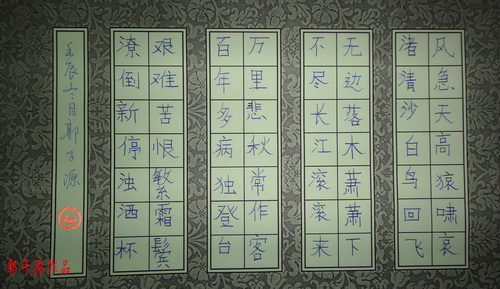 风急天高猿啸哀
渚清沙白鸟回飞
无边落木萧萧下
不尽长江滚滚来
万里悲秋常作客
百年多病独登台
艰难苦恨繁霜鬓
潦倒新停浊洒杯
壬辰十二月郭子源
郭子源作品